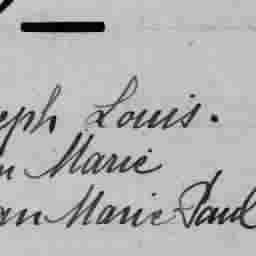 eph Louis.
n Marie
an Marie Paul